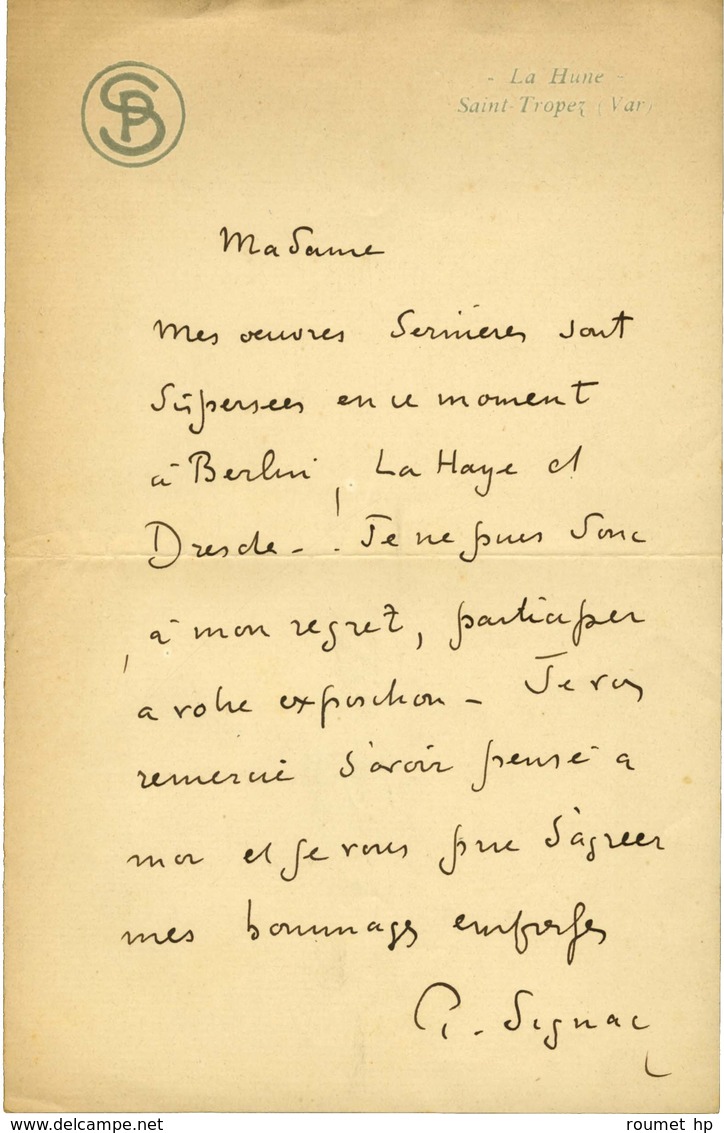 SPB
- La Hune -
Saint-Tropez (Var)
Madame
Mes œuvres dernières sont
dispersées en ce moment
à Berlin, La Haye et
Dresde - . Je ne puis donc
à mon regret, participer
à votre exposition - Je vous
remercie d'avoir pensé à
moi et je vous prie d'agréer
mes hommages empressés
P. Signac
www.delcampe.net
roumet hp